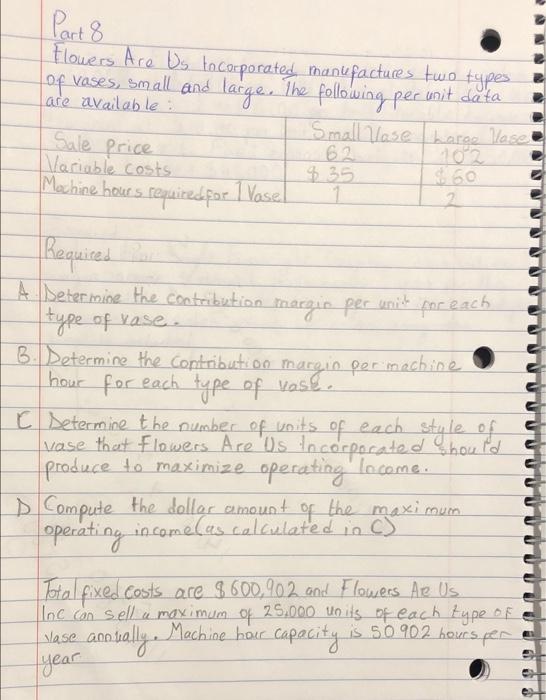 Part 8
Flowers Are Us Incorporated manufactures two types
of vases, small and large. The following per unit data
are available :
Small Vase Large Vase
Sale price 62 102
Variable costs $ 35 $ 60
Machine hours required for 1 Vase 1 2
Required
A. Determine the contribution margin per unit for each
type of vase.
B. Determine the contribution margin per machine
hour for each type of vase.
C Determine the number of units of each style of
vase that Flowers Are Us Incorporated should
produce to maximize operating Income.
D Compute the dollar amount of the maximum
operating income (as calculated in C)
Total fixed costs are $600,902 and Flowers Are Us
Inc can sell a maximum of 25,000 units of each type of
vase annually. Machine hour capacity is 50 902 hours per
year